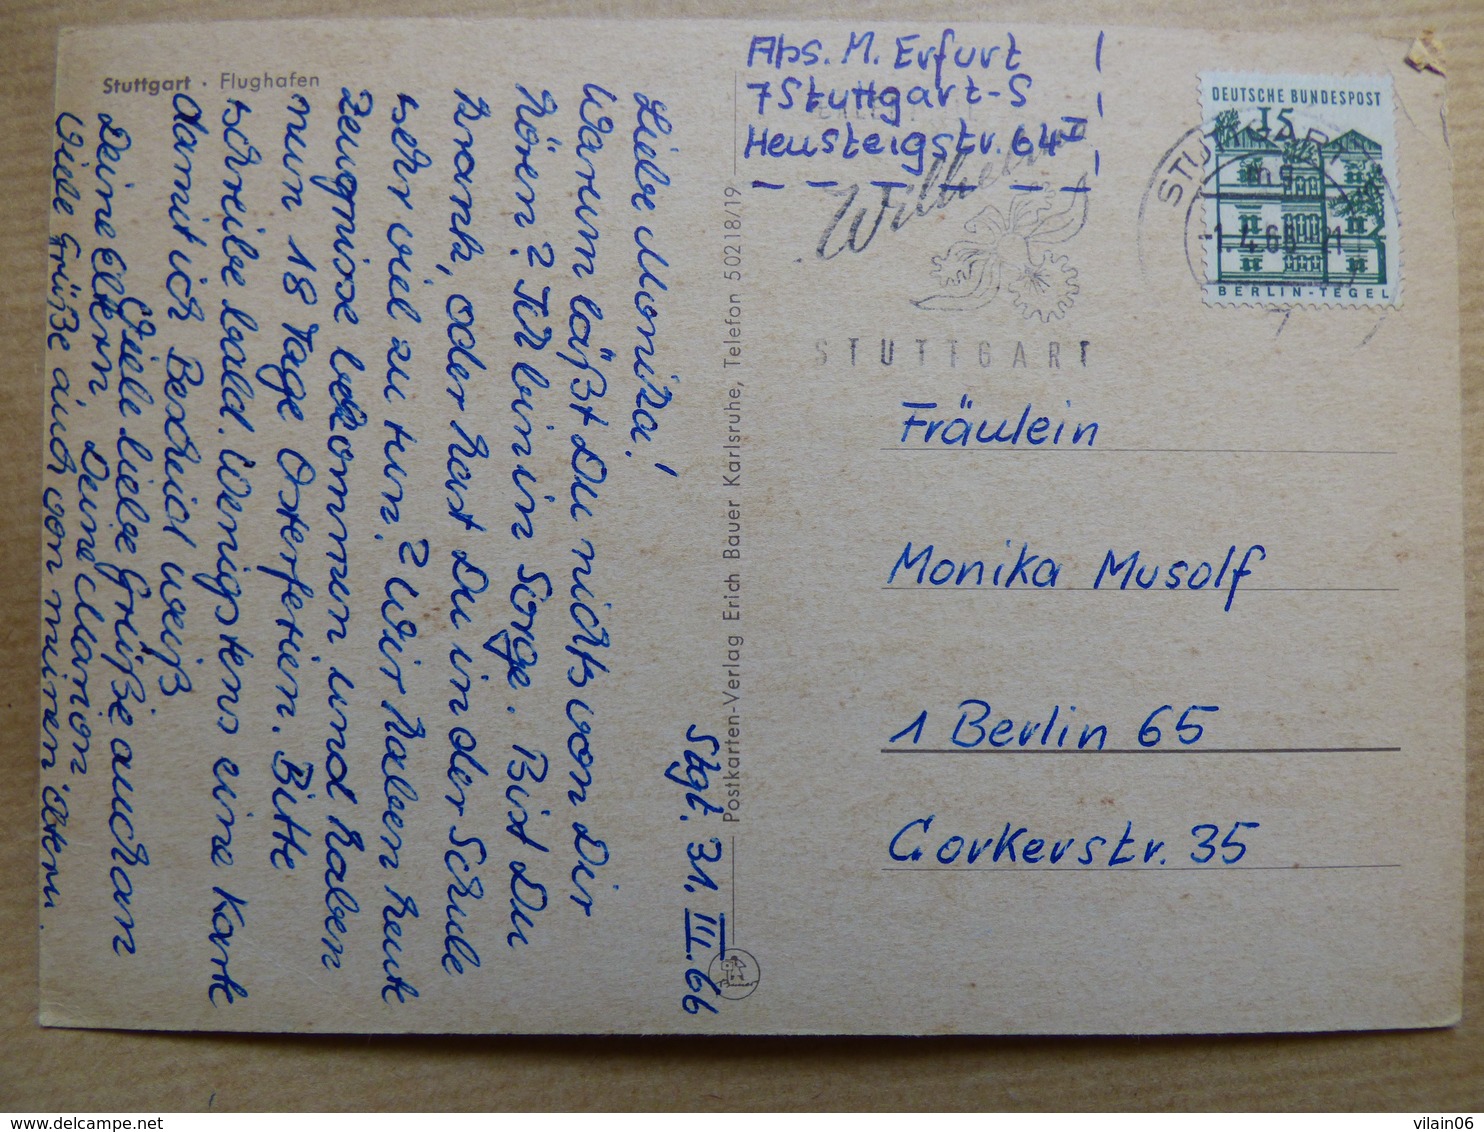 Stuttgart · Flughafen
Stgt. 31. III. 66
Liebe Monika!
Warum läßt Du nichts von Dir
hören? Ich bin in Sorge. Bist Du
krank, oder hast Du in der Schule
sehr viel zu tun? Wir haben heute
Zeugnisse bekommen und haben
nun 18 Tage Osterferien. Bitte
schreibe bald. Wenigstens eine Karte
damit ich Bescheid weiß
Viele liebe Grüße auch an
Deine Eltern Deine Marion
Viele Grüße auch von meinen Eltern.
Postkarten-Verlag Erich Bauer Karlsruhe, Telefon 50218/19
Abs. M. Erfurt
7 Stuttgart-S
Heusteigstr. 64 II
Wilhelma
STUTTGART
STUTTGART
-1.4.66
DEUTSCHE BUNDESPOST
15
BERLIN-TEGEL
Fräulein
Monika Musolf
1 Berlin 65
Corkerstr. 35
www.delcampe.net
vilain06